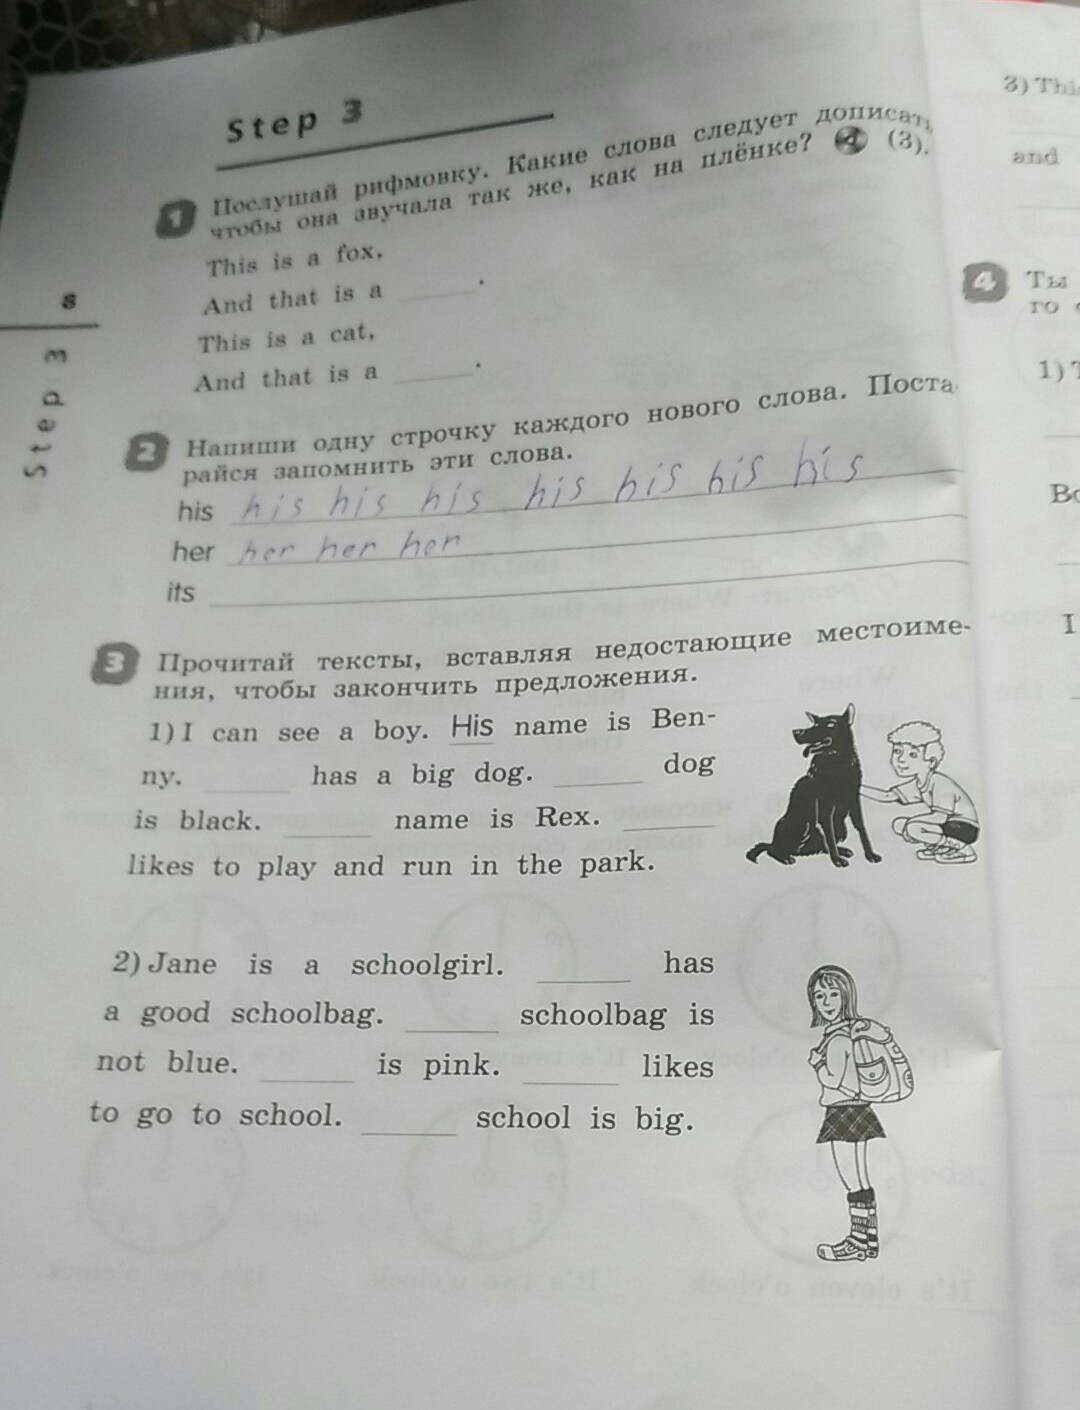 Step 3
1 Послушай рифмовку. Какие слова следует дописать,
чтобы она звучала так же, как на плёнке? (3).
This is a fox,
And that is a ______.
This is a cat,
And that is a ______.
8
Step 3
2 Напиши одну строчку каждого нового слова. Поста-
райся запомнить эти слова.
his his his his his his his his
her her her her
its
3 Прочитай тексты, вставляя недостающие местоиме-
ния, чтобы закончить предложения.
1) I can see a boy. His name is Ben-
ny. ______ has a big dog. ______ dog
is black. ______ name is Rex. ______
likes to play and run in the park.
2) Jane is a schoolgirl. ______ has
a good schoolbag. ______ schoolbag is
not blue. ______ is pink. ______ likes
to go to school. ______ school is big.
3) This
and
4 Ты
го
1)
I